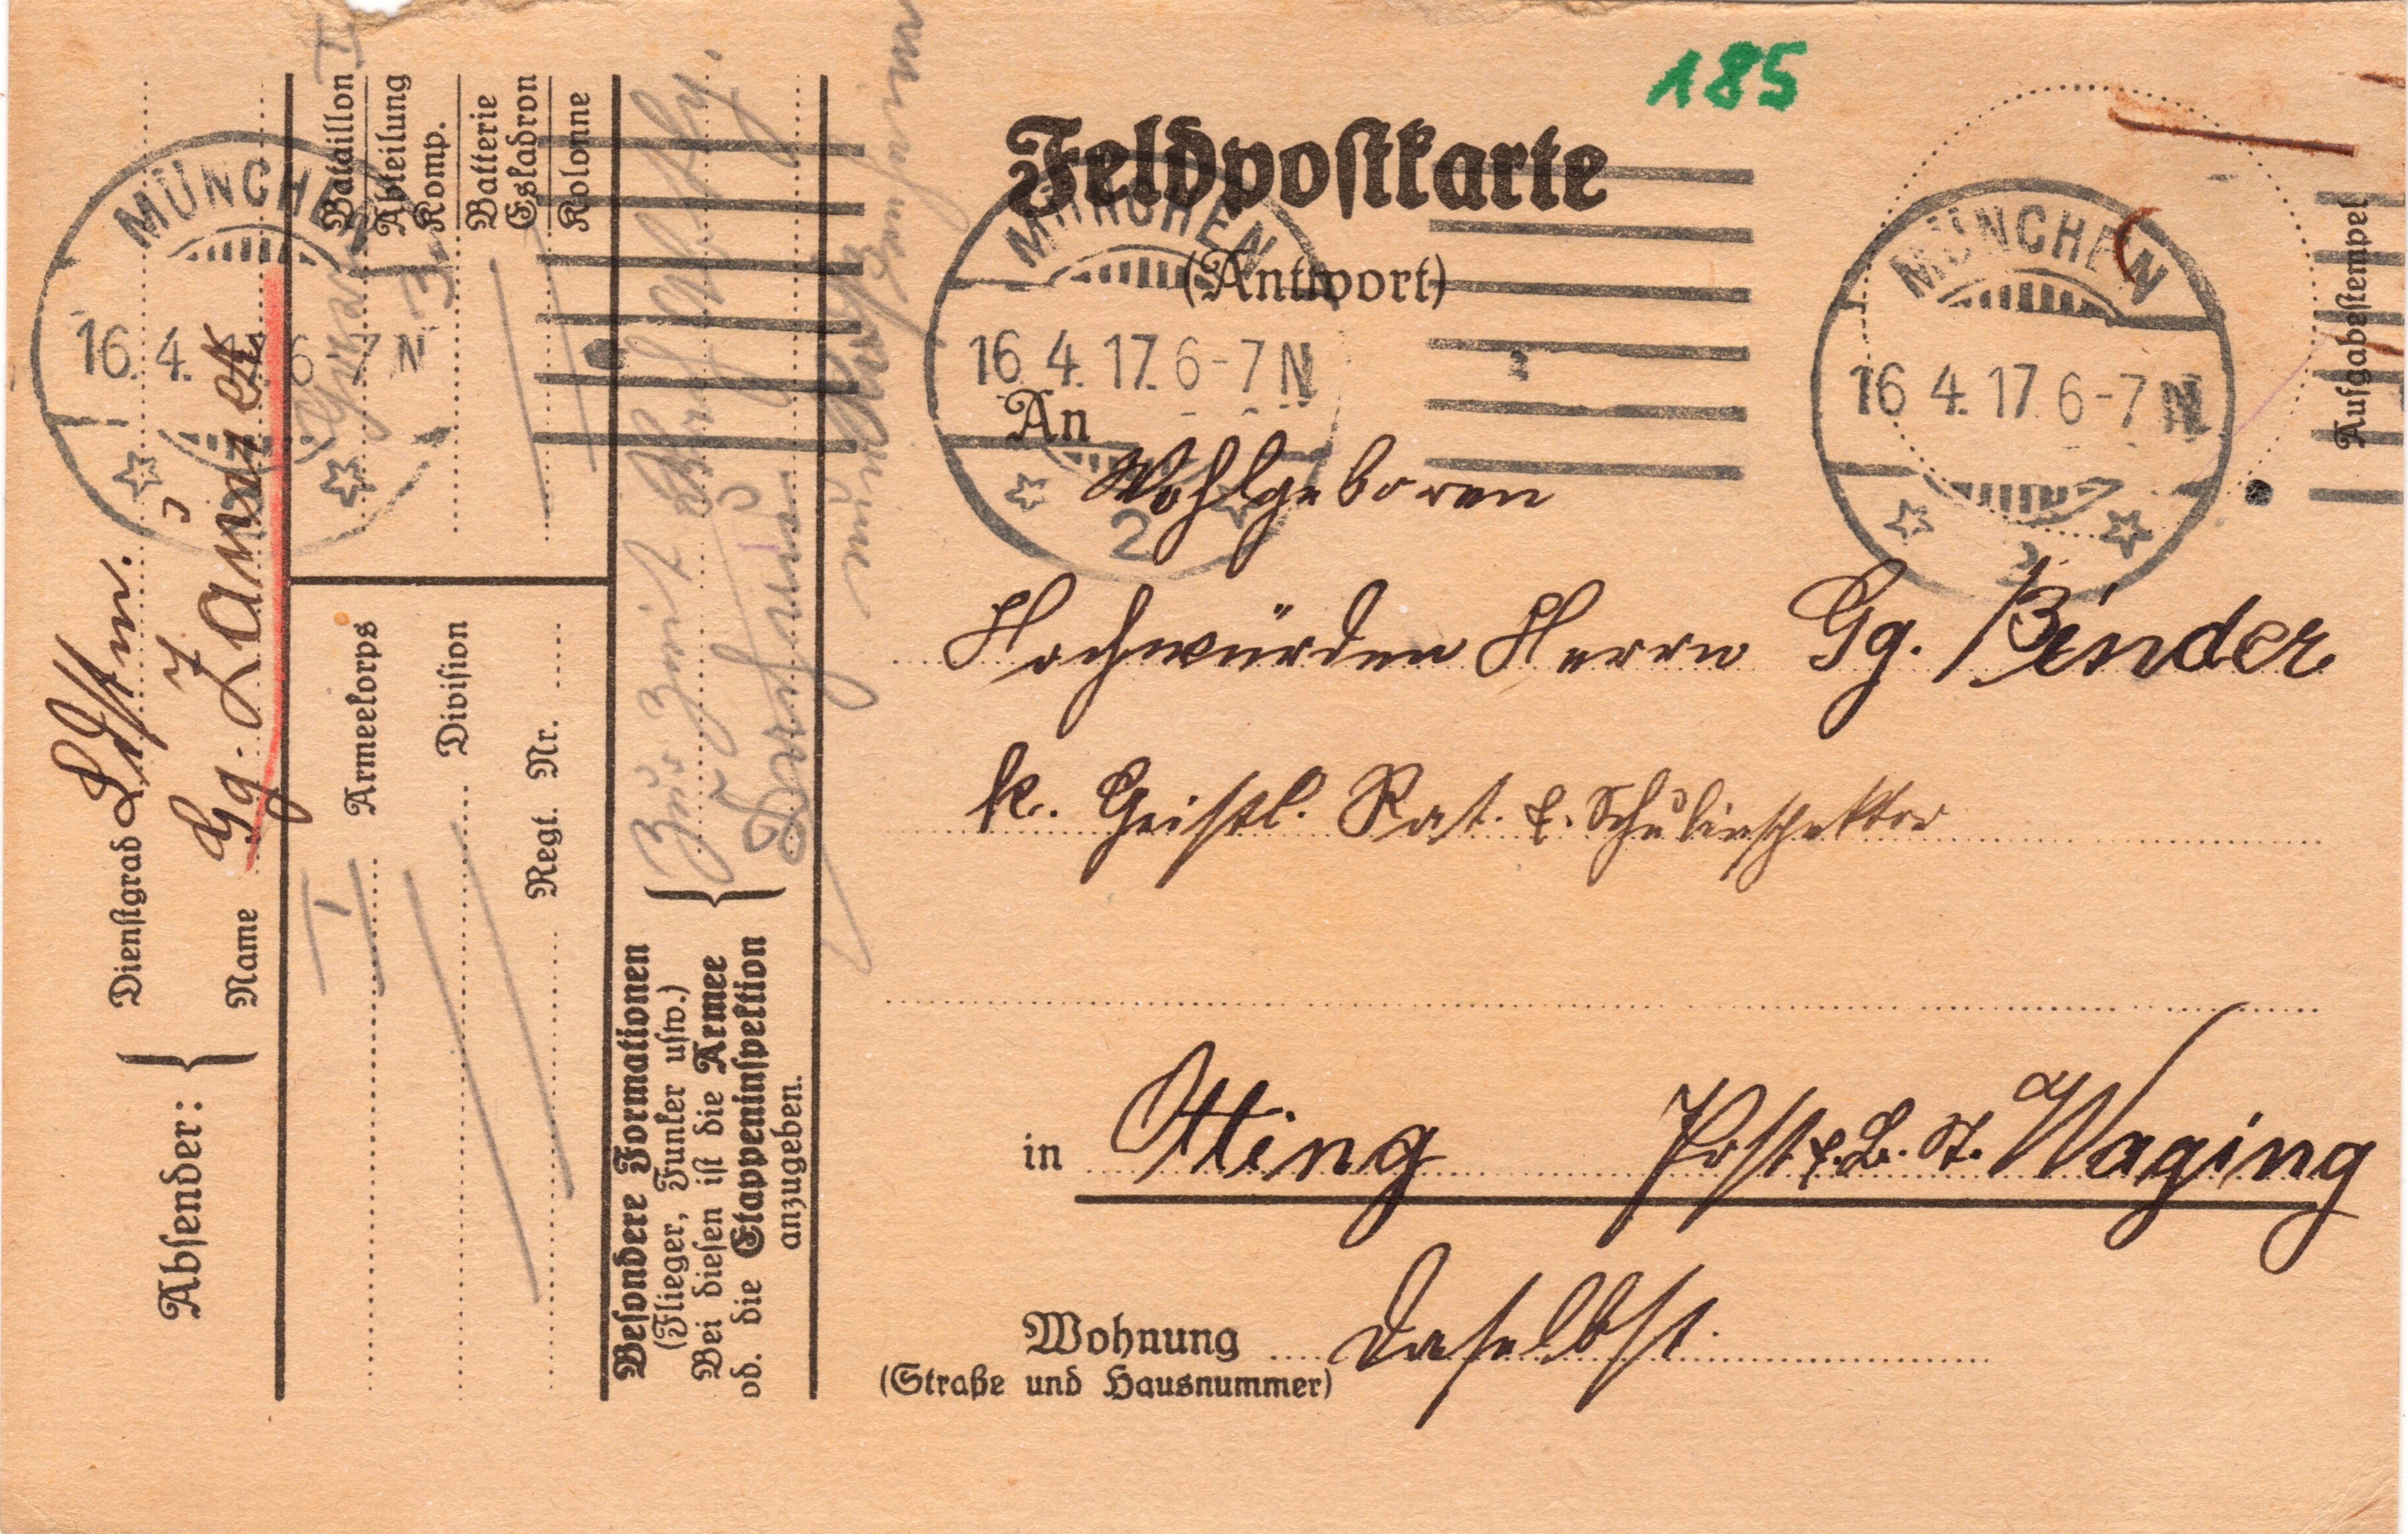 185
Feldpostkarte
(Antwort)
Aufgabestempel
MÜNCHEN
16. 4. 17. 6-7 N
2
MÜNCHEN
16. 4. 17. 6-7 N
2
MÜNCHEN
16. 4. 17. 6-7 N
An
Wohlgeboren
Hochwürden Herrn Gg. Binder
k. Geistl. Rat. u. Schulinspektor
in Otting Post u. B. St. Waging
Wohnung daselbst.
(Straße und Hausnummer)
Absender:
Dienstgrad Lstm.
Name Gg.
I Armeekorps
Division
Regt. Nr.
Bataillon II
Abteilung
Komp. 3.
Batterie
Eskadron
Kolonne
Besondere Formationen
(Flieger, Funker usw.)
Bei diesen ist die Armee
od. die Etappeninspektion
anzugeben.
Zur Zeit